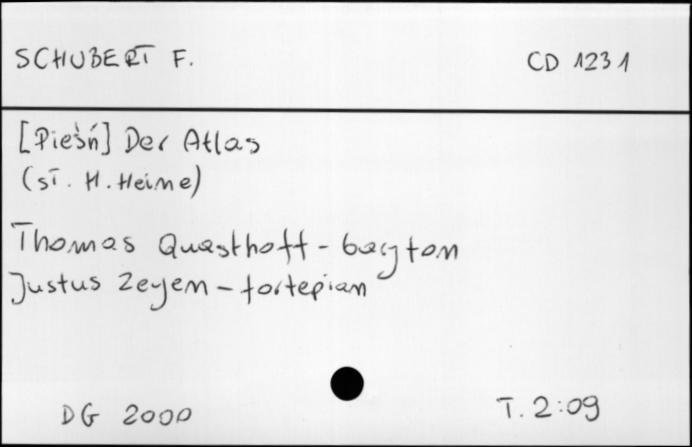 SCHUBERT F. CD 1231
[Pieśń] Der Atlas
(sł. H. Heine)
Thomas Quasthoff - baryton
Justus Zeyen - fortepian
DG 2000 T. 2:09